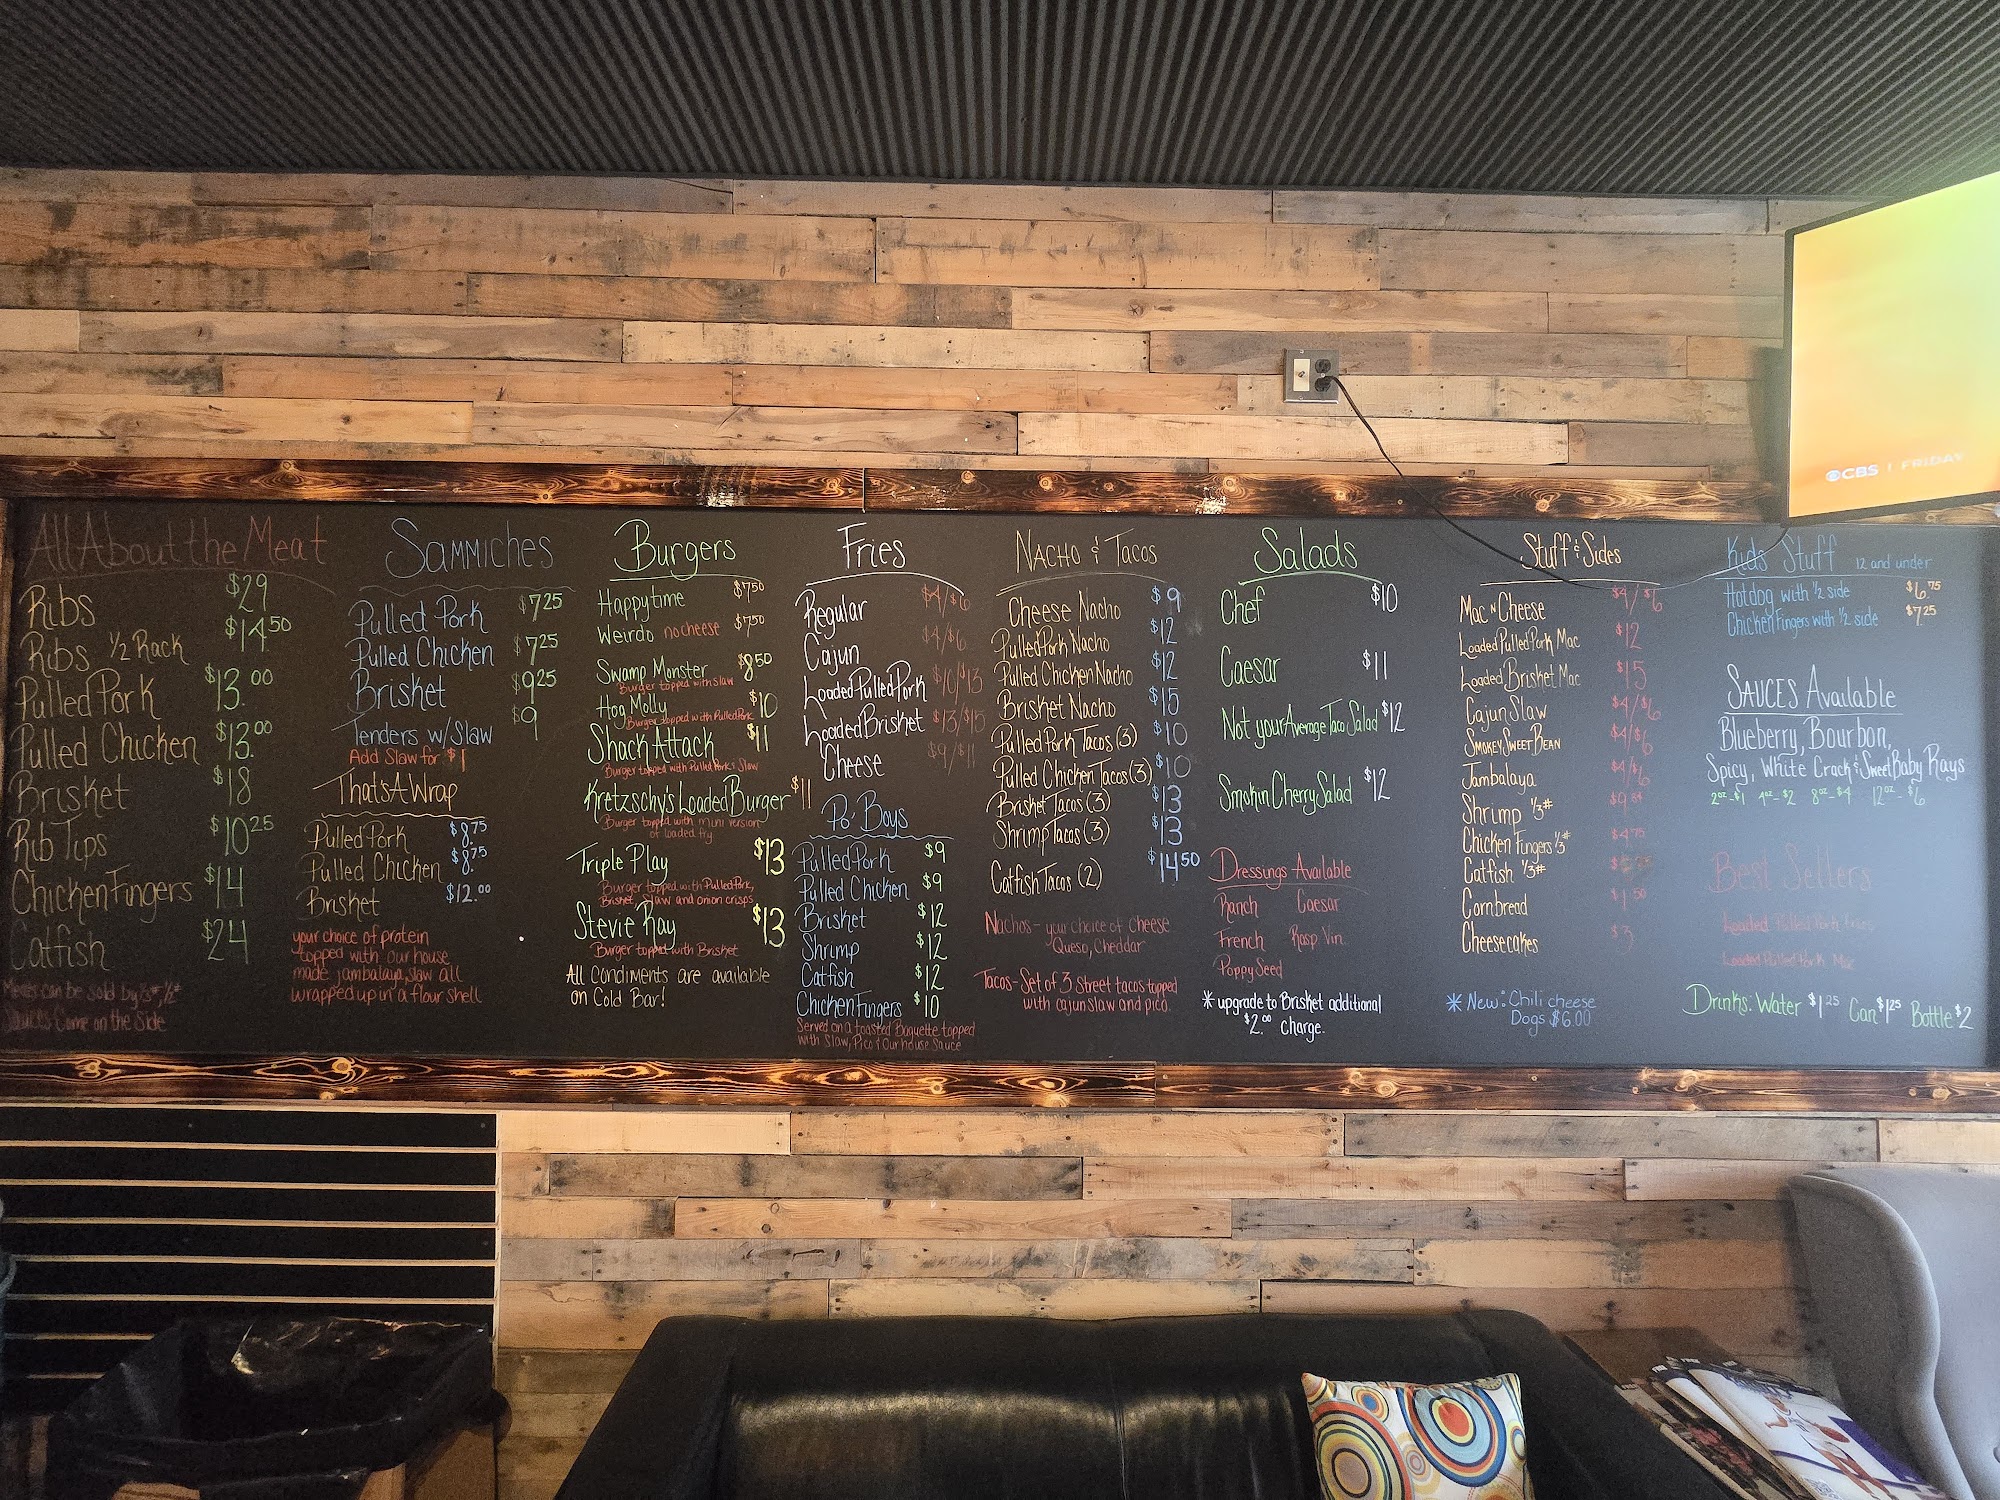 CBS | FRIDAY
All About the Meat
Ribs $29
Ribs ½ Rack $14.50
Pulled Pork $13.00
Pulled Chicken $13.00
Brisket $18
Rib Tips $10.25
Chicken Fingers $14
Catfish $24
Meats can be sold by ⅓#, ½#
Sauces Come on the Side
Sammiches
Pulled Pork $7.25
Pulled Chicken $7.25
Brisket $9.25
Tenders w/Slaw $9
Add Slaw for $1
That's A Wrap
Pulled Pork $8.75
Pulled Chicken $8.75
Brisket $12.00
your choice of protein
topped with our house
made jambalaya, slaw all
wrapped up in a flour shell
Burgers
Happytime $7.50
Weirdo no cheese $7.50
Swamp Monster $8.50
Burger topped with slaw
Hog Molly $10
Burger topped with Pulled Pork
Shack Attack $11
Burger topped with Pulled Pork & Slaw
Kretzschy's Loaded Burger $11
Burger topped with mini version
of loaded fry
Triple Play $13
Burger topped with Pulled Pork,
Brisket, Slaw and onion crisps
Stevie Ray $13
Burger topped with Brisket
All Condiments are available
on Cold Bar!
Fries
Regular $4/$6
Cajun $4/$6
Loaded Pulled Pork $10/$13
Loaded Brisket $13/$15
Cheese $9/$11
Po' Boys
Pulled Pork $9
Pulled Chicken $9
Brisket $12
Shrimp $12
Catfish $12
Chicken Fingers $10
Served on a toasted Baguette topped
with Slaw, Pico & Our house Sauce
Nacho & Tacos
Cheese Nacho $9
Pulled Pork Nacho $12
Pulled Chicken Nacho $12
Brisket Nacho $15
Pulled Pork Tacos (3) $10
Pulled Chicken Tacos (3) $10
Brisket Tacos (3) $13
Shrimp Tacos (3) $13
Catfish Tacos (2) $14.50
Nachos - your choice of Cheese
Queso, Cheddar
Tacos - Set of 3 Street tacos topped
with cajun slaw and pico.
Salads
Chef $10
Caesar $11
Not your Average Taco Salad $12
Smokin Cherry Salad $12
Dressings Available
Ranch Caesar
French Rasp Vin.
Poppy Seed
* upgrade to Brisket additional
$2.00 charge.
Stuff & Sides
Mac N Cheese $4/$6
Loaded Pulled Pork Mac $12
Loaded Brisket Mac $15
Cajun Slaw $4/$6
Smokey Sweet Bean $4/$6
Jambalaya $4/$6
Shrimp ⅓#
Chicken Fingers ⅓# $4.75
Catfish ⅓#
Cornbread $1.50
Cheesecakes $3
* New: Chili cheese
Dogs $6.00
Kids Stuff 12 and under
Hotdog with ½ side $6.75
Chicken Fingers with ½ side $7.25
Sauces Available
Blueberry, Bourbon,
Spicy, White Crack & Sweet Baby Rays
2oz-$1 4oz-$2 8oz-$4 12oz-$6
Best Sellers
Loaded Pulled Pork Fries
Loaded Pulled Pork Mac
Drinks: Water $1.25 Can $1.25 Bottle $2